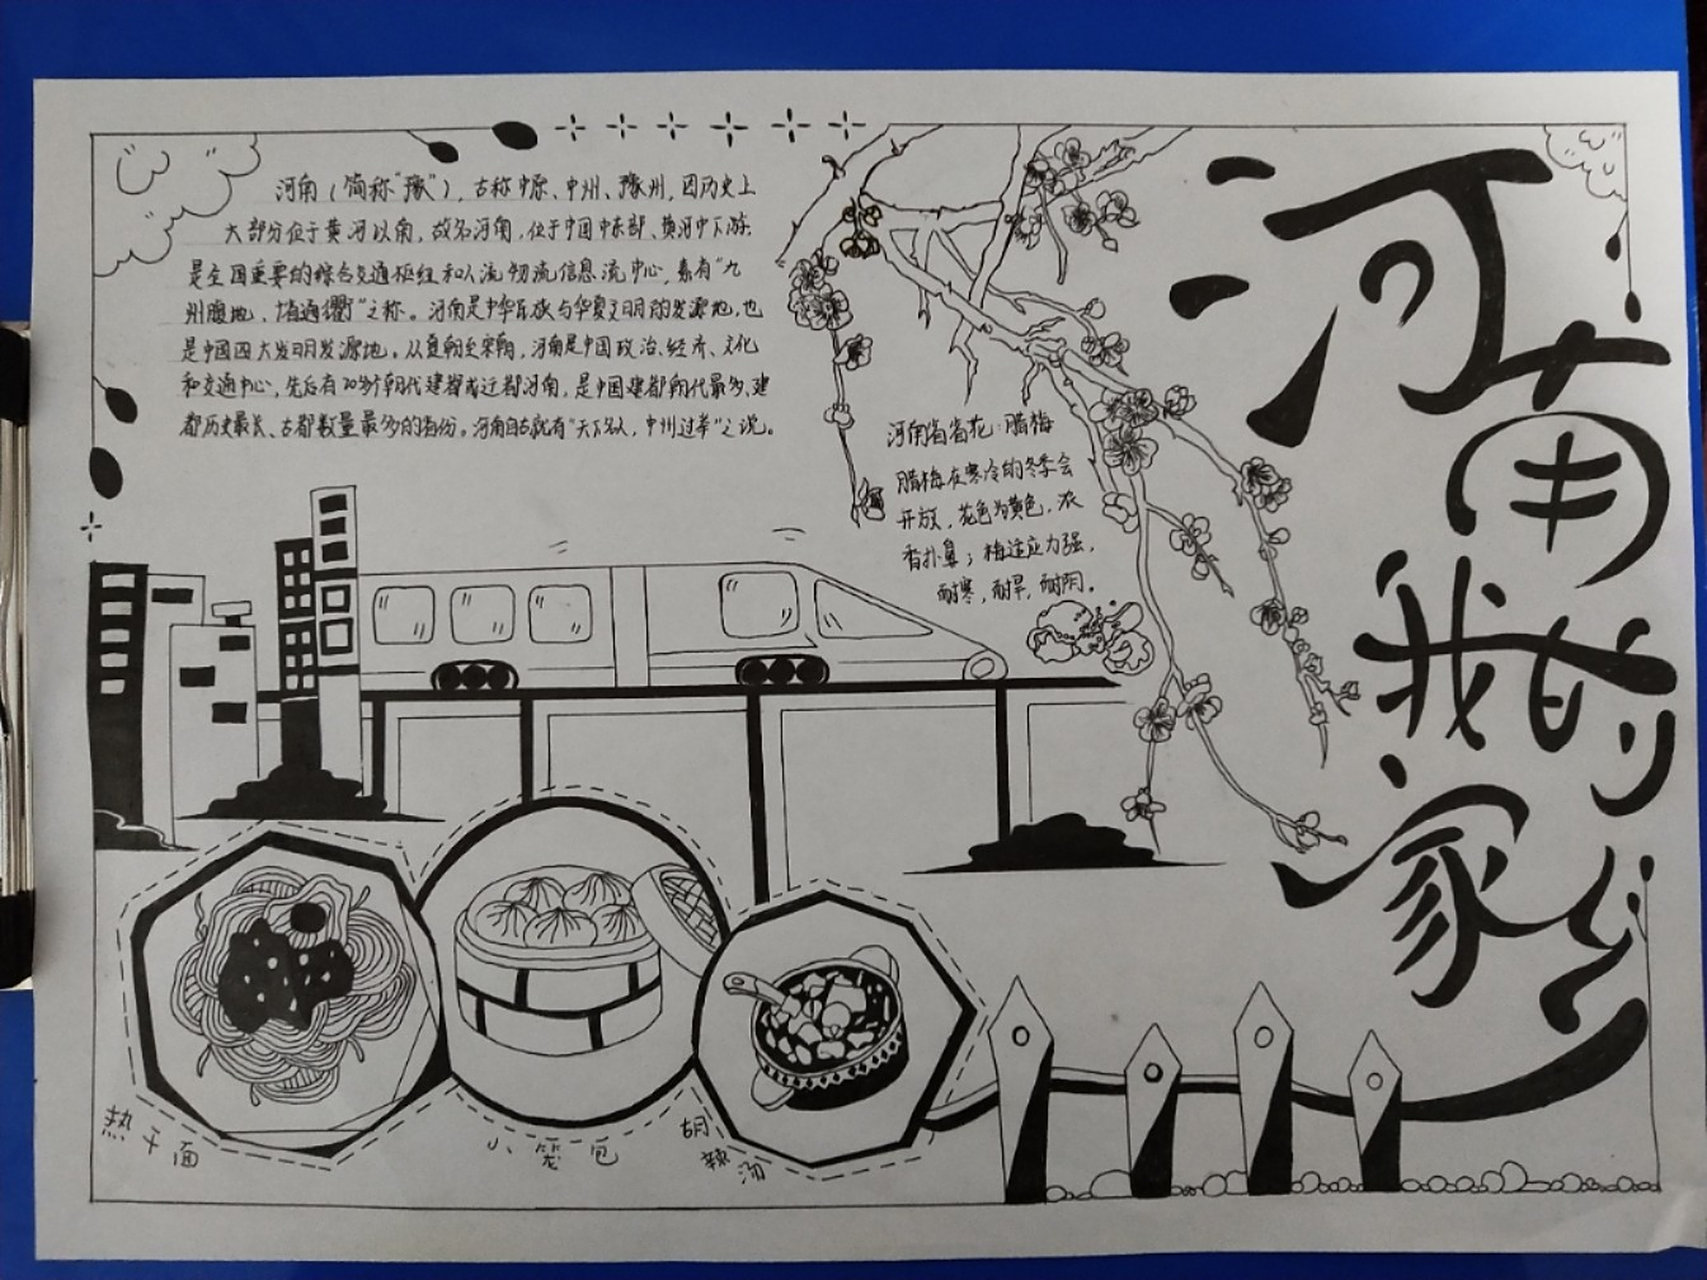 河南（简称“豫”），古称中原、中州、豫州，因历史上
大部分位于黄河以南，故名河南，位于中国中东部、黄河中下游，
是全国重要的综合交通枢纽和人流物流信息流中心，素有“九
州腹地、十省通衢”之称。河南是中华民族与华夏文明的发源地，也
是中国四大发明发源地。从夏朝至宋朝，河南是中国政治、经济、文化
和交通中心，先后有20多个朝代建都或迁都河南，是中国建都朝代最多、建
都历史最长、古都数量最多的省份。河南自古就有“天下名人，中州过半”之说。
河南省省花：腊梅
腊梅在寒冷的冬季会
开放，花色为黄色，浓
香扑鼻；梅适应力强，
耐寒，耐旱，耐阴。
河南
我的
家乡
热干面
小笼包
胡辣汤